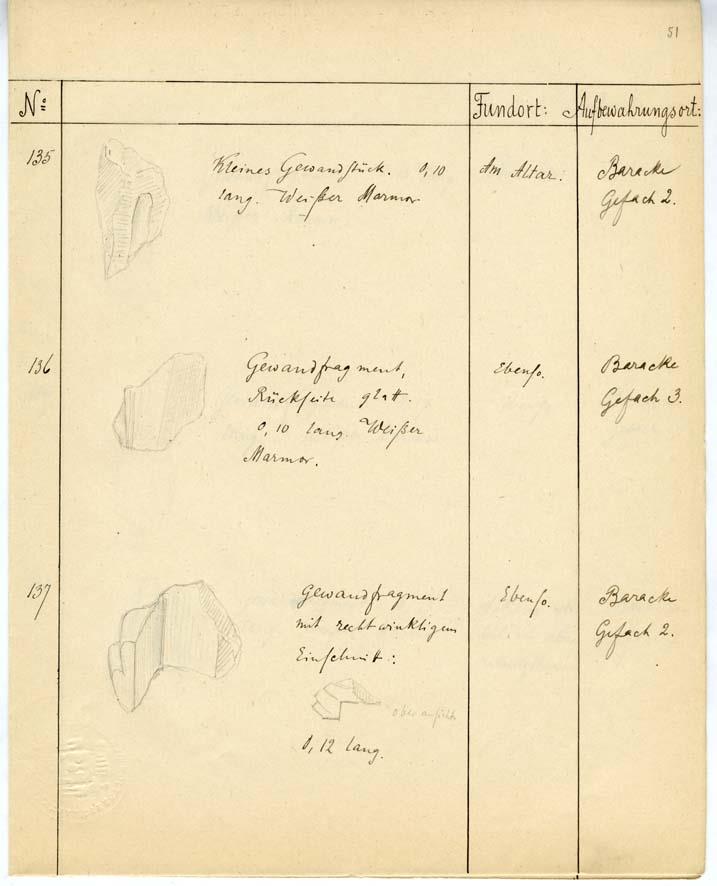 51
No: Fundort: Aufbewahrungsort:
135 Kleines Gewandstück. 0,10 Am Altar. Baracke
lang. Weißer Marmor Gefach 2.
136 Gewandfragment, Ebenso. Baracke
Rückseite glatt. Gefach 3.
0,10 lang. Weißer
Marmor.
137 Gewandfragment Ebenso. Baracke
mit rechtwinkligem Gefach 2.
Einschnitt:
Oberansicht
0,12 lang.